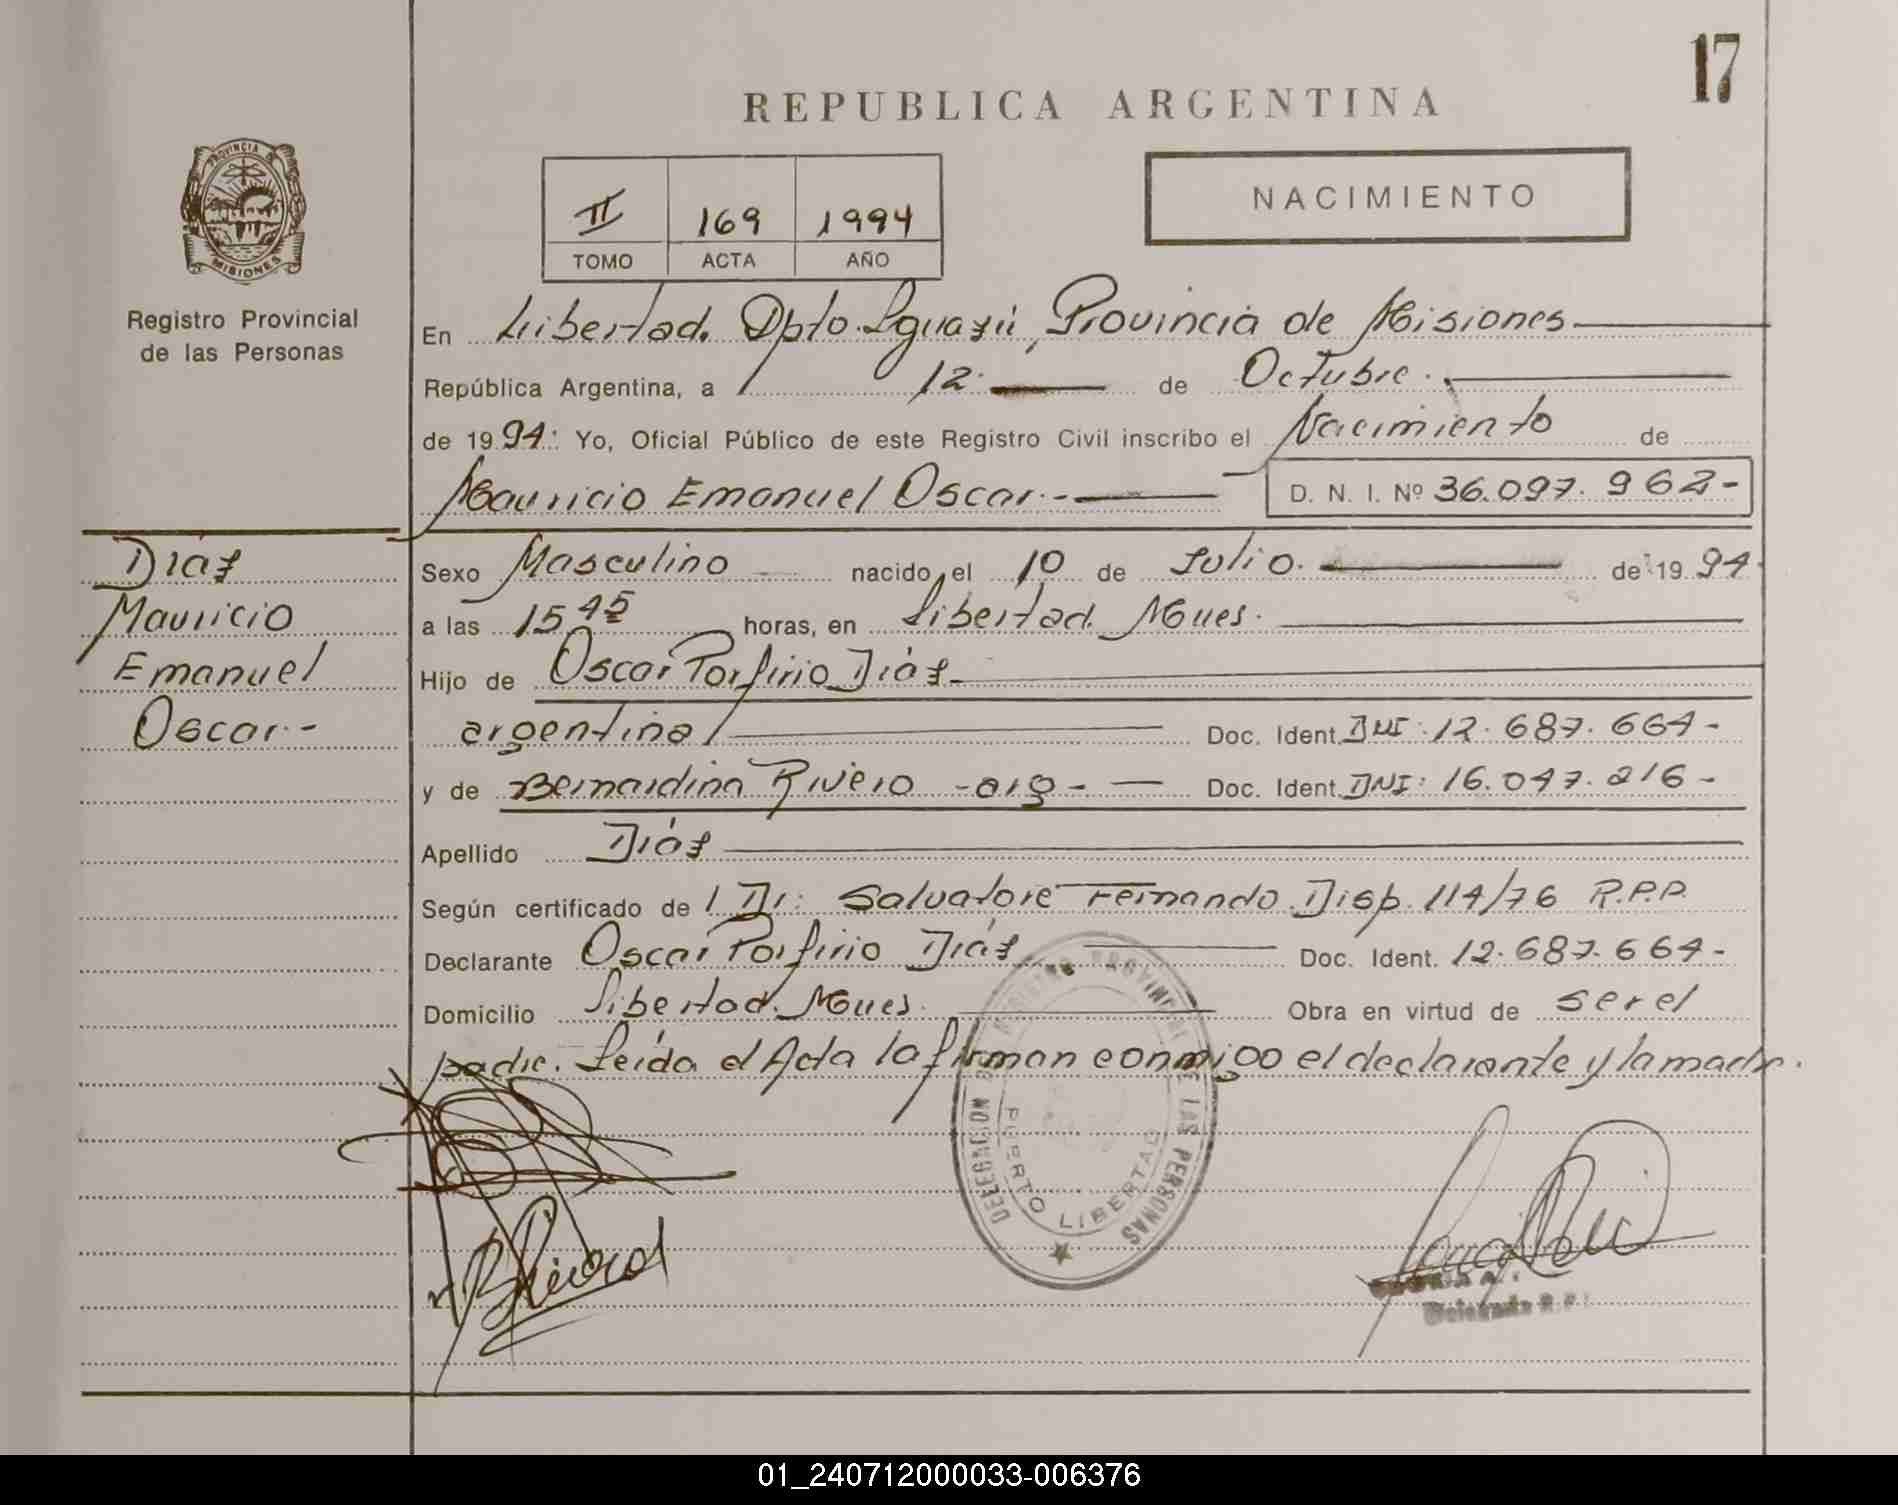 17
REPUBLICA ARGENTINA
PROVINCIA DE
MISIONES
II 169 1994
TOMO ACTA AÑO
NACIMIENTO
Registro Provincial
de las Personas
En Libertad. Dpto. Iguazú, Provincia de Misiones
República Argentina, a 12. de Octubre.
de 1994. Yo, Oficial Público de este Registro Civil inscribo el Nacimiento de
Mauricio Emanuel Oscar.- D. N. I. Nº 36.097.962-
Díaz
Mauricio
Emanuel
Oscar.-
Sexo Masculino nacido el 10 de Julio. de 1994.
a las 15 45 horas, en Libertad. Mnes.
Hijo de Oscar Porfirio Díaz-
argentina Doc. Ident. DNI: 12.687.664-
y de Bernardina Rivero -arg- Doc. Ident. DNI: 16.047.216-
Apellido Díaz
Según certificado de l Dr: Salvatore Fernando. Disp. 114/76 R.P.P.
Declarante Oscar Porfirio Díaz Doc. Ident. 12.687.664-
Domicilio Libertad. Mnes. Obra en virtud de ser el
padre. Leída el Acta la firman conmigo el declarante y la madre.
DELEGACION REGISTRO PROVINCIAL DE LAS PERSONAS
PUERTO LIBERTAD
Delegada R.P.
01_240712000033-006376